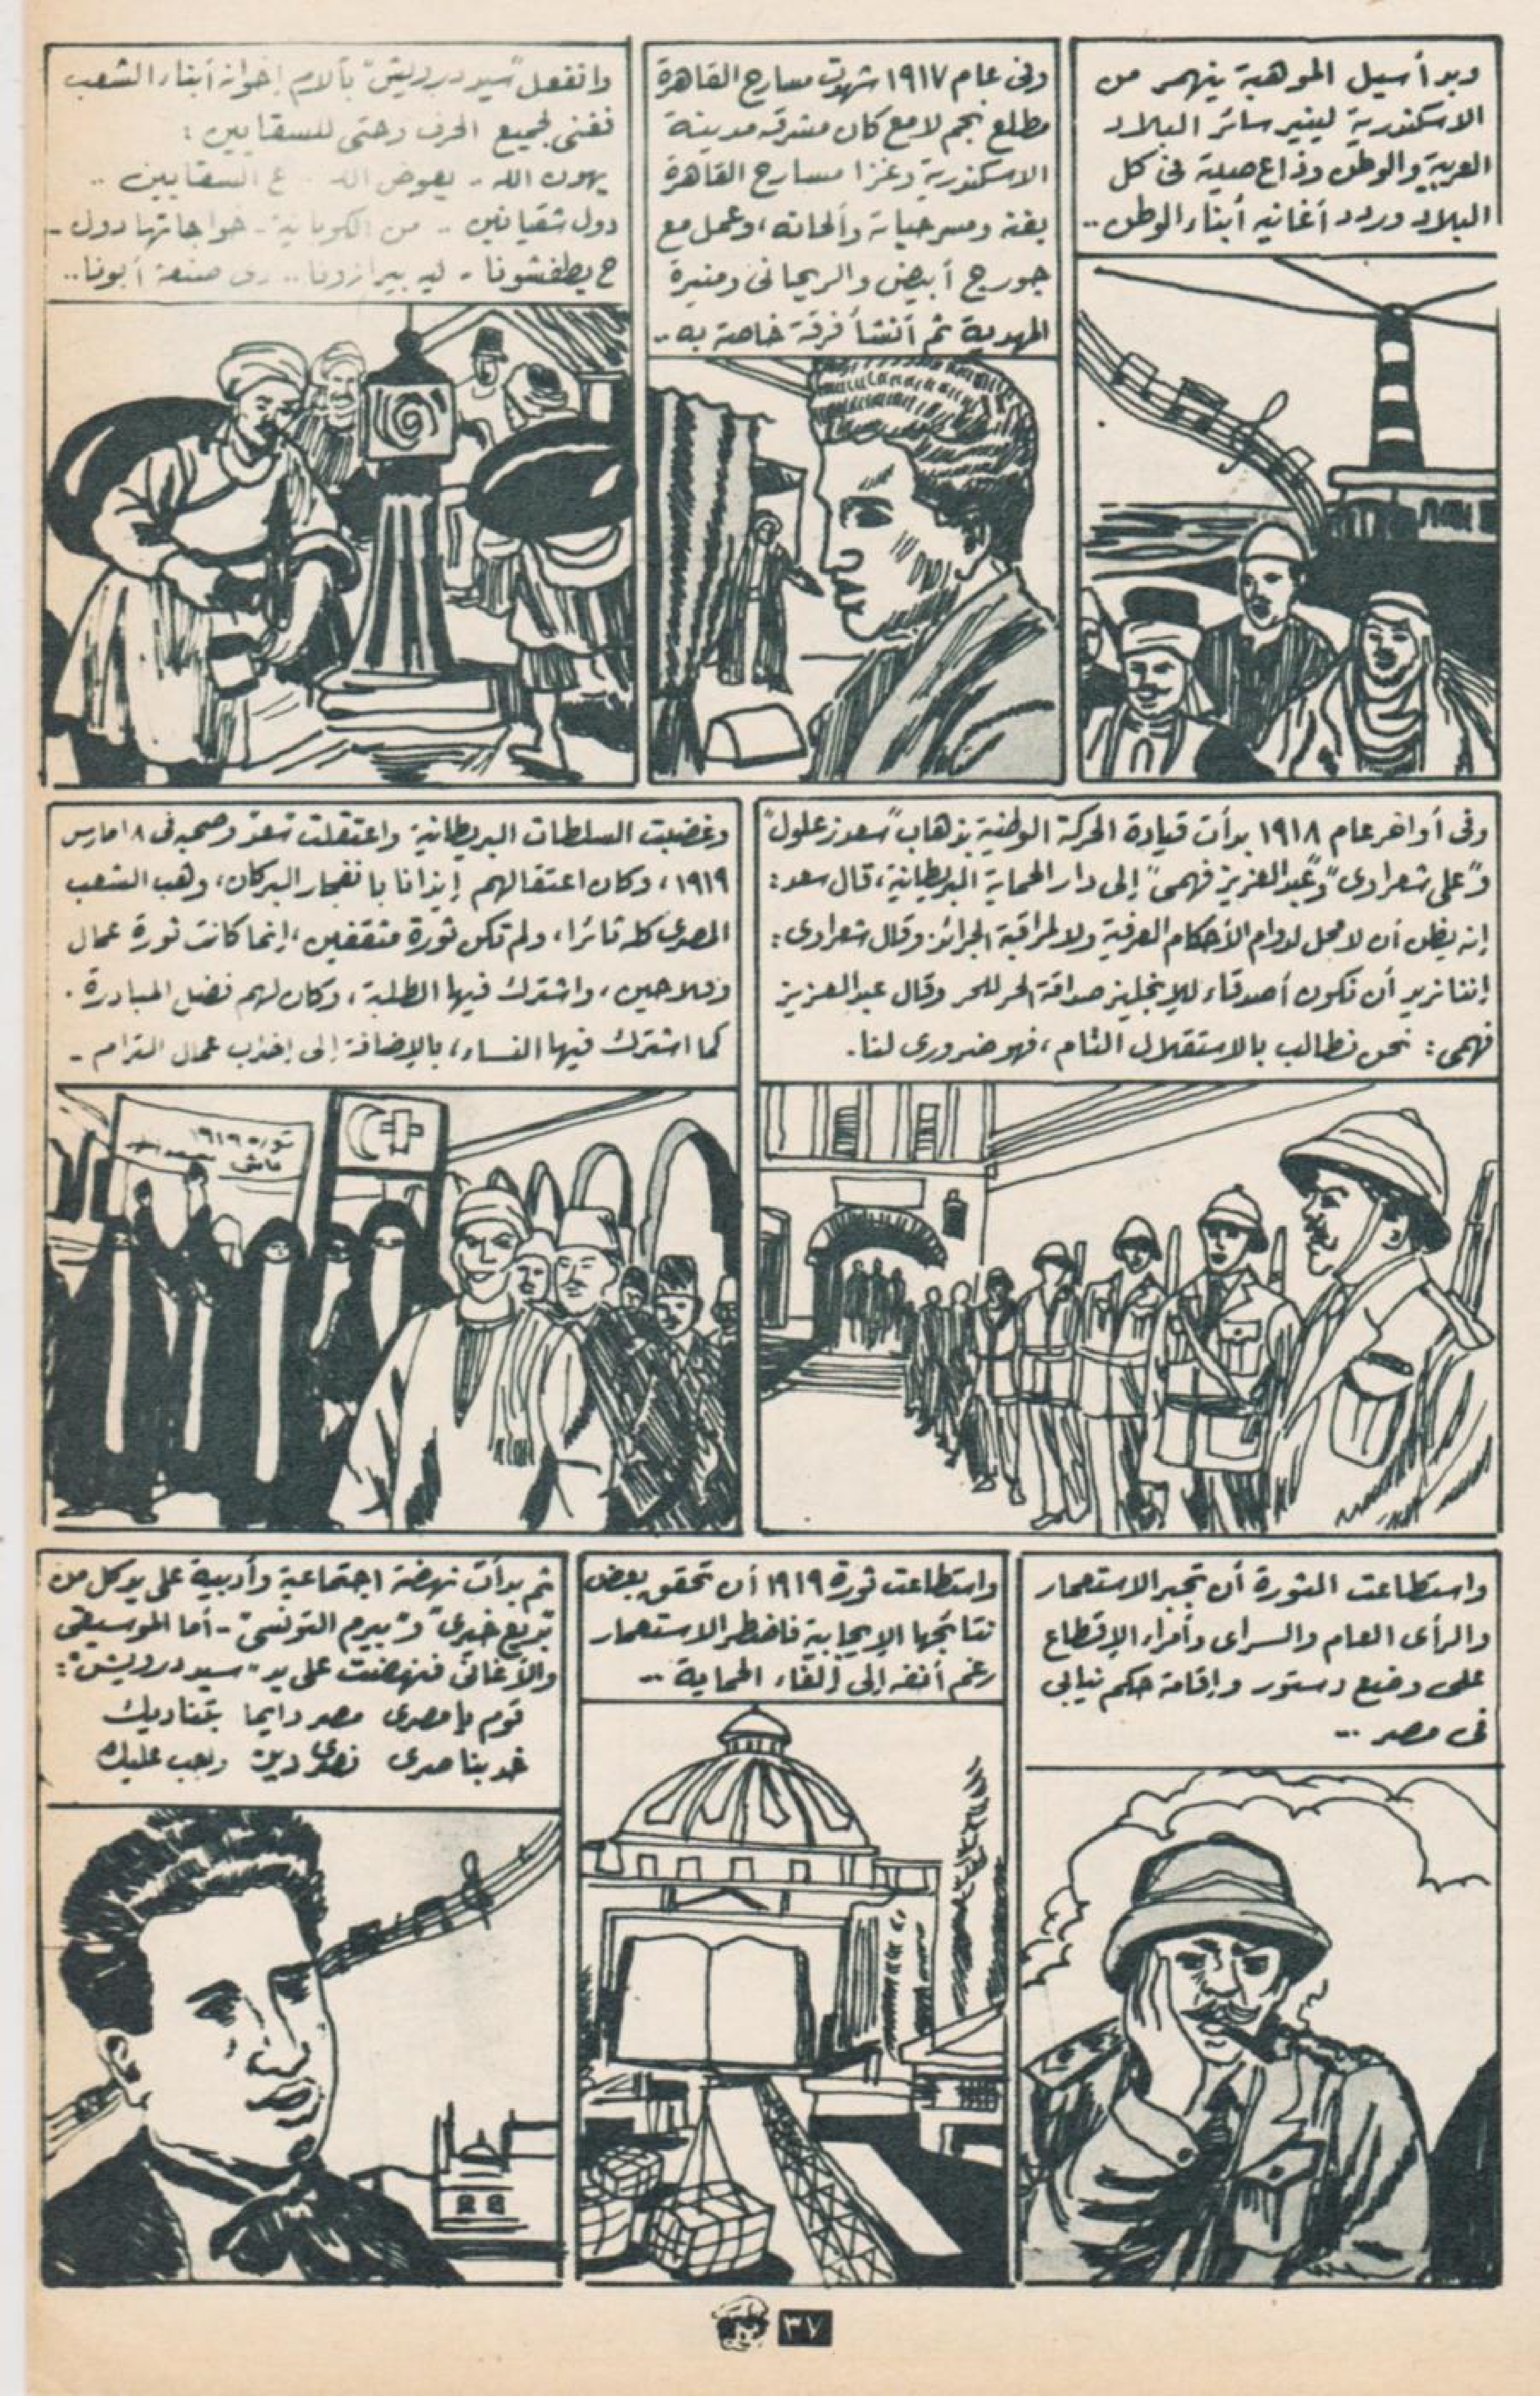 وبدأ سيل الموهبة ينهمر من
الاسكندرية لينير سائر البلاد
العربية والوطن وذاع صيته فى كل
البلاد وردد أغانيه أبناء الوطن ..
وفى عام ١٩١٧ شهدت مسارح القاهرة
مطلع نجم لامع كان مشرقه مدينة
الاسكندرية وغزا مسارح القاهرة
بفنه ومسرحياته وألحانه، وعمل مع
جورج أبيض والريحانى ومنيرة
المهدية ثم أنشأ فرقة خاصة به ..
وانفعل "سيد درويش" بآلام إخوانه أبناء الشعب
فغنى لجميع الحرف وحتى للسقايين :
يهون الله - يعوض الله .. ع السقايين ..
دول شقيانين .. من الكوبانية - خواجاتها دول -
ح يطفشونا - ليه بيرازونا .. دى صنعة أبونا ..
وفى أواخر عام ١٩١٨ بدأت قيادة الحركة الوطنية بذهاب "سعد زغلول"
و"على شعراوى" و"عبد العزيز فهمى" إلى دار الحماية البريطانية، قال سعد :
إنه يظن أن لا محل لدوام الأحكام العرفية ولا لمراقبة الجرائد وقال شعراوى :
إننا نريد أن نكون أصدقاء للإنجليز صداقة الحر للحر وقال عبد العزيز
فهمى : نحن نطالب بالاستقلال التام، فهو ضرورى لنا .
وغضبت السلطات البريطانية واعتقلت سعد وصحبه فى ٨ مارس
١٩١٩، وكان اعتقالهم إيذانا بانفجار البركان، وهب الشعب
المصرى كله ثائرا، ولم تكن ثورة مثقفين، إنما كانت ثورة عمال
وفلاحين، واشترك فيها الطلبة، وكان لهم فضل المبادرة .
كما اشترك فيها النساء، بالإضافة إلى إضراب عمال الترام -
ثورة ١٩١٩
واستطاعت الثورة أن تجبر الاستعمار
والرأى العام والسراى وأمراء الإقطاع
على وضع دستور وإقامة حكم نيابى
فى مصر ..
واستطاعت ثورة ١٩١٩ أن تحقق بعض
نتائجها الإيجابية فاضطر الاستعمار
رغم أنفه إلى إلغاء الحماية ..
ثم بدأت نهضة اجتماعية وأدبية على يد كل من
"بديع خيرى" و"بيرم التونسى" - أما الموسيقى
والأغانى فنهضت على يد "سيد درويش" :
قوم يا مصرى مصر دايما بتناديك
خد بناصرى نصرى دين واجب عليك
٣٧